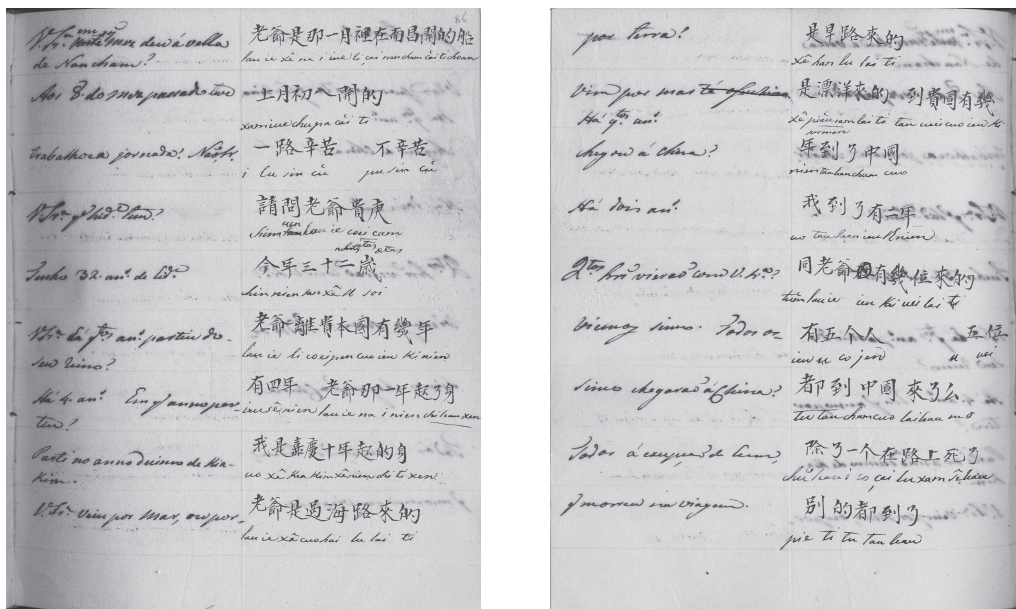 V. Sr. em q mez deu á vella 老爺是那一月裡在南昌開的船
de Nancham? lau ie xé na i iué li çai nan cham cai ti chuen
Aos 8. do mez passado tive 上月初八開的
xam iue chu pa cai ti
trabalhosa jornada? Não Sr. 一路辛苦 不辛苦
i lu sin cu pu sin cu
請問老爺貴庚
lau ie cuei cam
Tenho 32. an. de id. 今年三十二歲
kin nien san xe ll soi
V. Sr. há q.tos an. partiu do 老爺離貴本國有幾年
seu reino? lau ie li coei pen cuo ieu ki nien
Há 4. an. Em q anno par- 有四年 老爺那一年起了身
tiu? ieu sé nien lau ie na i nien chi leau xen
Parti no anno decimo de Kia- 我是嘉慶十年起的身
kim. uo xé kia kim xé nien chi ti xen
V. Sr. veiu por mar, ou por- 老爺是過海路來的
lau ie xé cuo hai lu lai ti
por terra? 是旱路來的
xé han lu lai ti
Vim por mar 是漂洋來的 到貴國有幾
Há q. an. xé piau iam lai ti tau cuei cuo ieu ki
chegou á China? 年到了中國
nien tau leau chum cuo
Há dois an. 我到了有二年
uo tau leau ieu ll nien
Q.tos vierão com V. Sr.? 同老爺有幾位來的
tum lau ie ieu ki uei lai ti
Viemos sinco. Todos os- 有五个人 五位
ieu u co jen u uei
sinco chegarão á China? 都到中國來了么
tu tau chum cuo lai leau mo
Todos á exceição de hum, 除了一个在路上死了
chu leau i co çai lu xam sè leau
q morreu na viagem. 别的都到了
pie ti tu tau leau